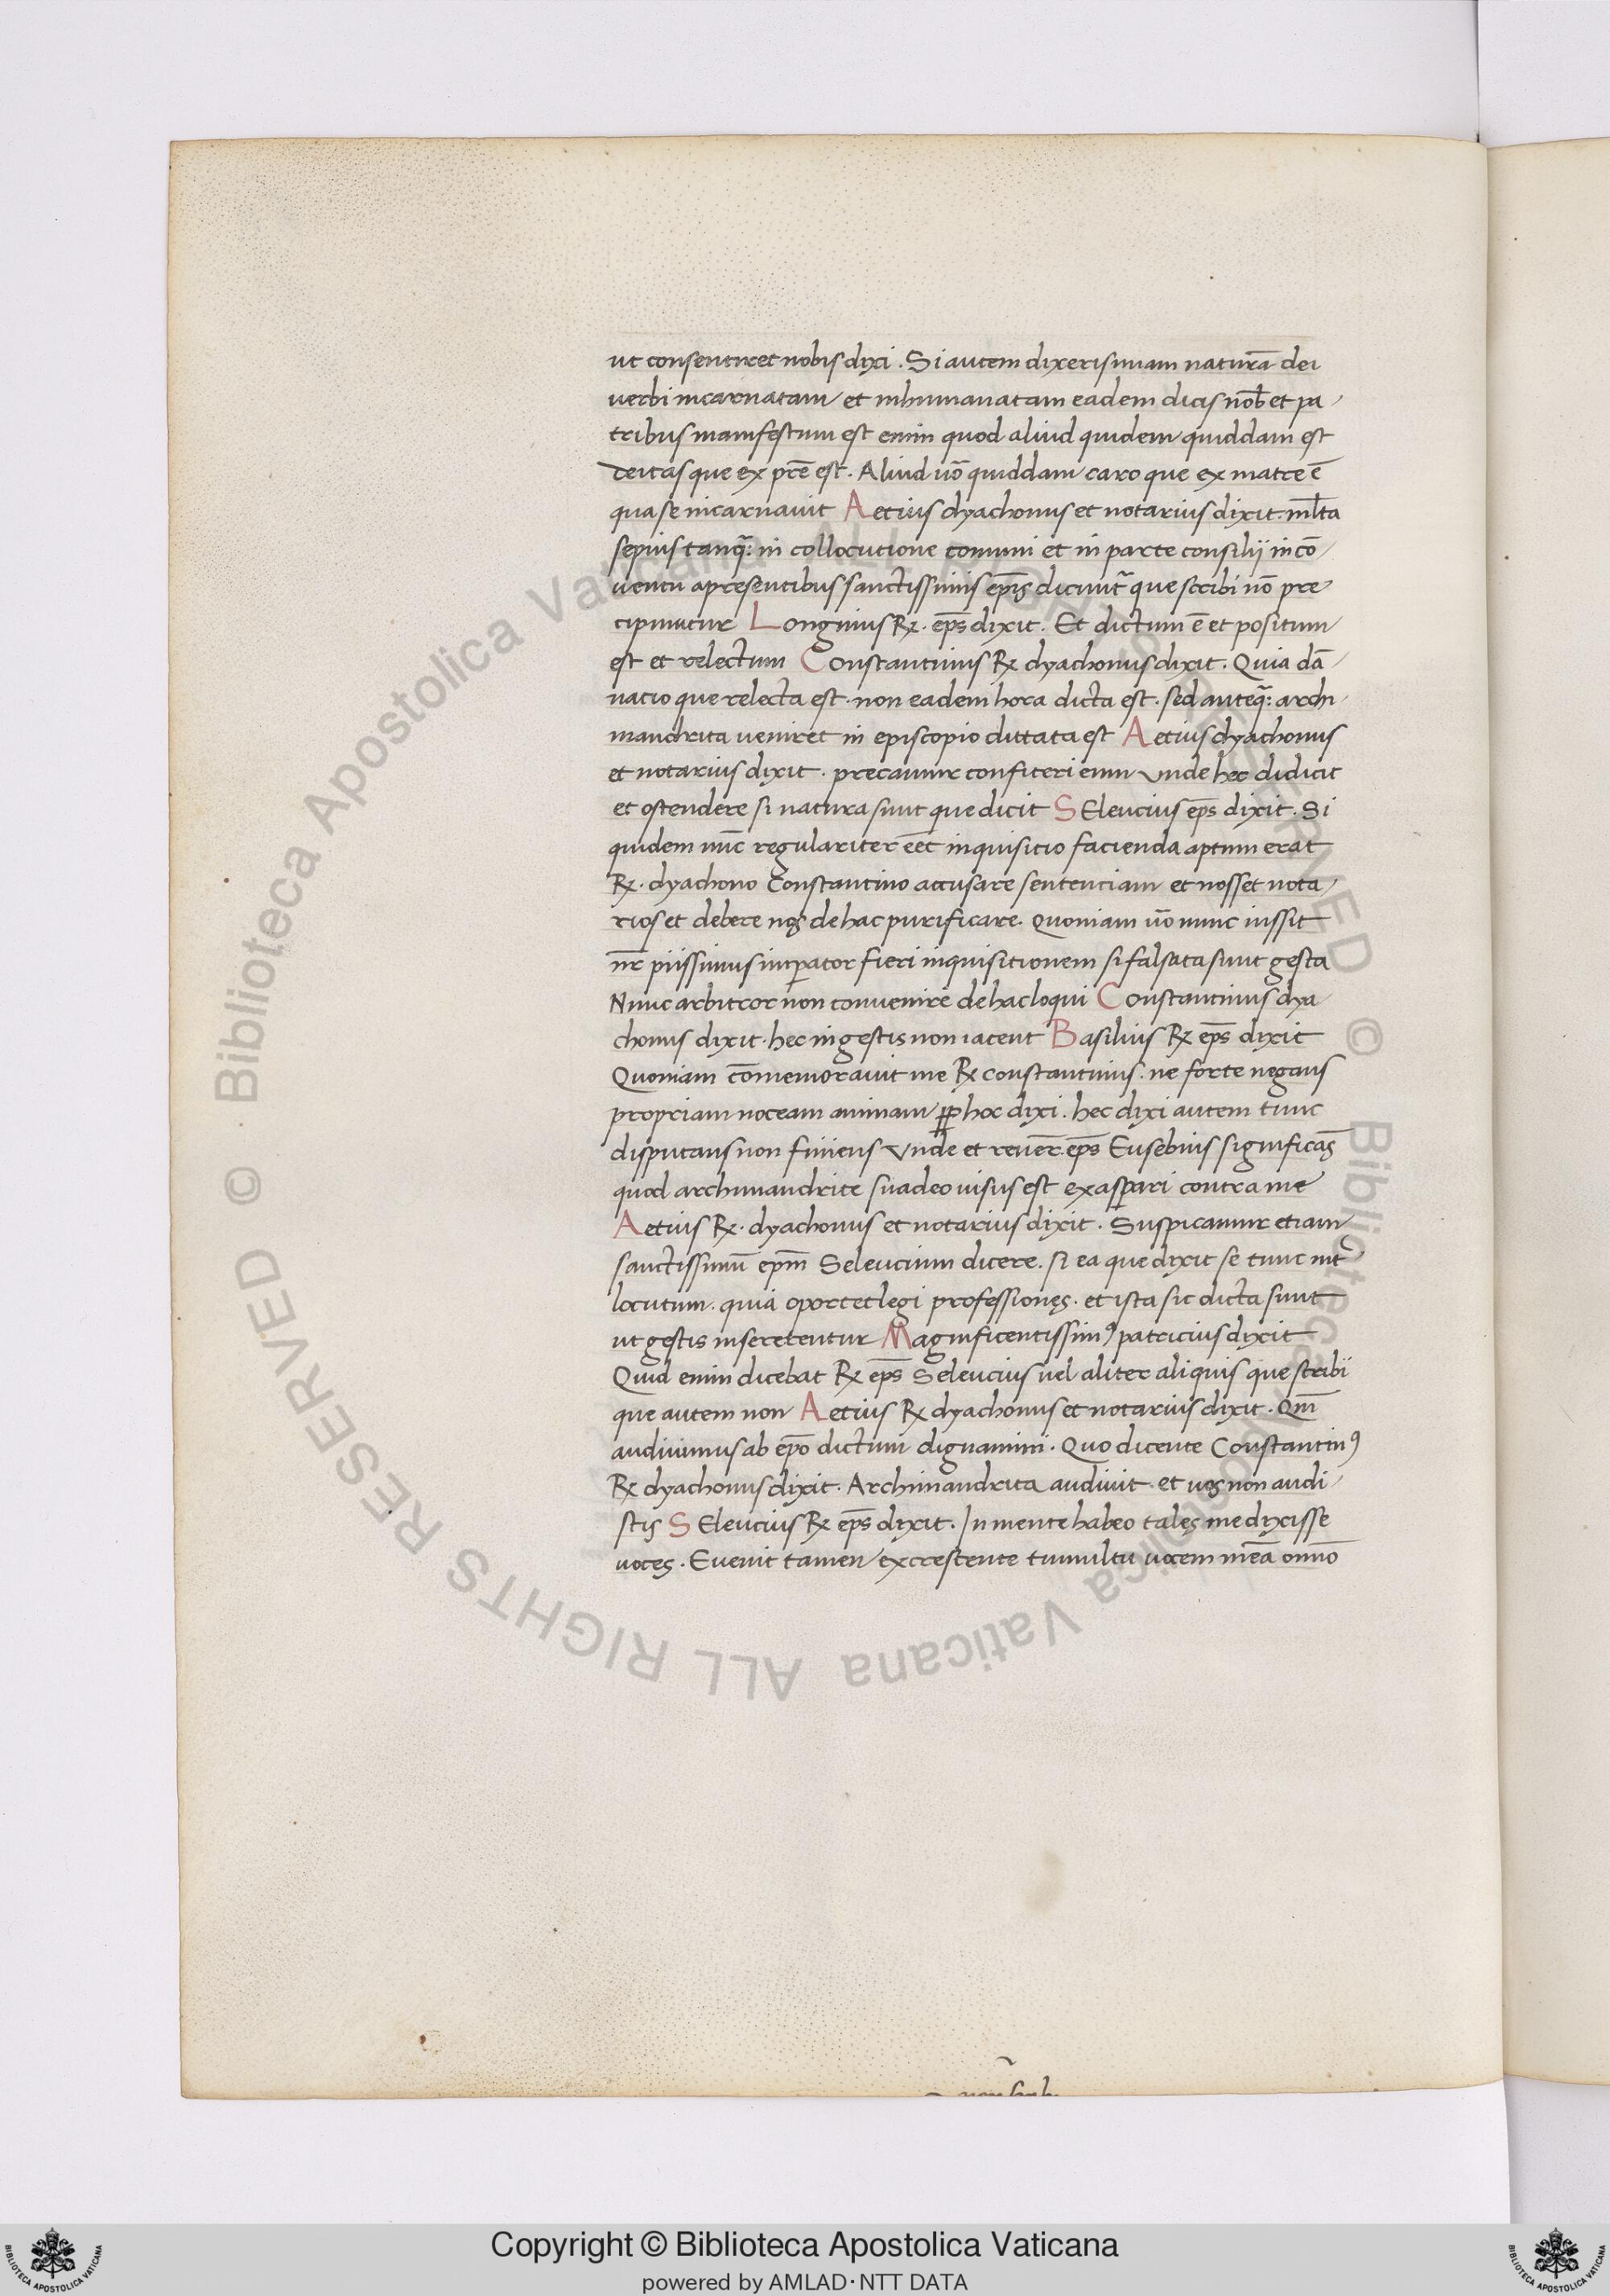 ut consentiret nobis dixi . Si autem dixeris unam naturā dei
verbi incarnatam et inhumanatam eadem dicis nob̄ et pa
tribus manifestum est enim quod aliud quidem quiddam est
deitas que ex pr̄e est . Aliud ūo quiddam caro que ex matre ē
qua se incarnavit Aetius dyachonus et notarius dixit . ml̄ta
sepius tanq̄ : in collocutione comuni et in parte consilij in cō
uentu a presentibus sanctissimis ep̄is dicunt̄ que scribi nō pre
cipiuntur Longinus R . ep̄s dixit . Et dictum ē et positum
est et relectum Constantinus R dyachonus dixit . Quia dā
natio que relecta est . non eadem hora dicta est . sed anteq̄ : archi
mandrita veniret in episcopio dittata est Aetius dyachonus
et notarius dixit . precamur confiteri eum vnde hec didicit
et ostendere si natura sunt que dicit SEleucius ep̄s dixit . Si
quidem nūc regulariter eēt inquisitio facienda aptum erat
R . dyachono Constantino accusare sentenciam et nosset nota
rios et debere nos de hac purificare . Quoniam ūo nunc iussit
nr̄ piissimus imperator fieri inquisitionem si falsata sunt gesta
Nunc arbitror non convenire de hac loqui Constantinus dya
chonus dixit . hec in gestis non iacent Basilius R ep̄s dixit
Quoniam cōmemoravit me R constantinus . ne forte negans
propriam noceam animam pp hoc dixi . hec dixi autem tunc
disputans non finiens Vnde et reuer̄ . ep̄s Eusebius significās
quod archimandrite suadeo visus est exasperari contra me
Aetius R . dyachonus et notarius dixit . Suspicamur etiam
sanctissimū ep̄m Seleucium dicere . si ea que dixit se tunc int̄
locutum . quia oportet legi professiones . et ista sic dicta sunt
ut gestis insererentur Magnificentissim⁹ patricius dixit
Quid enim dicebat R ep̄s Seleucius vel aliter aliquis que scribi
que autem non Aetius R dyachonus et notarius dixit . Qm̄
audivimus ab ep̄o dictum dignamini . Quo dicente Constantin⁹
R dyachonus dixit . Archimandrita audivit et vos non audi
stis SEleucius R ep̄s dixit . In mente habeo tales me dixisse
voces . Evenit tamen excrescente tumultu vocem meā omnō
Copyright © Biblioteca Apostolica Vaticana
powered by AMLAD · NTT DATA
© Biblioteca Apostolica Vaticana ALL RIGHTS RESERVED
© Biblioteca Apostolica Vaticana ALL RIGHTS RESERVED
BIBLIOTECA APOSTOLICA VATICANA
BIBLIOTECA APOSTOLICA VATICANA